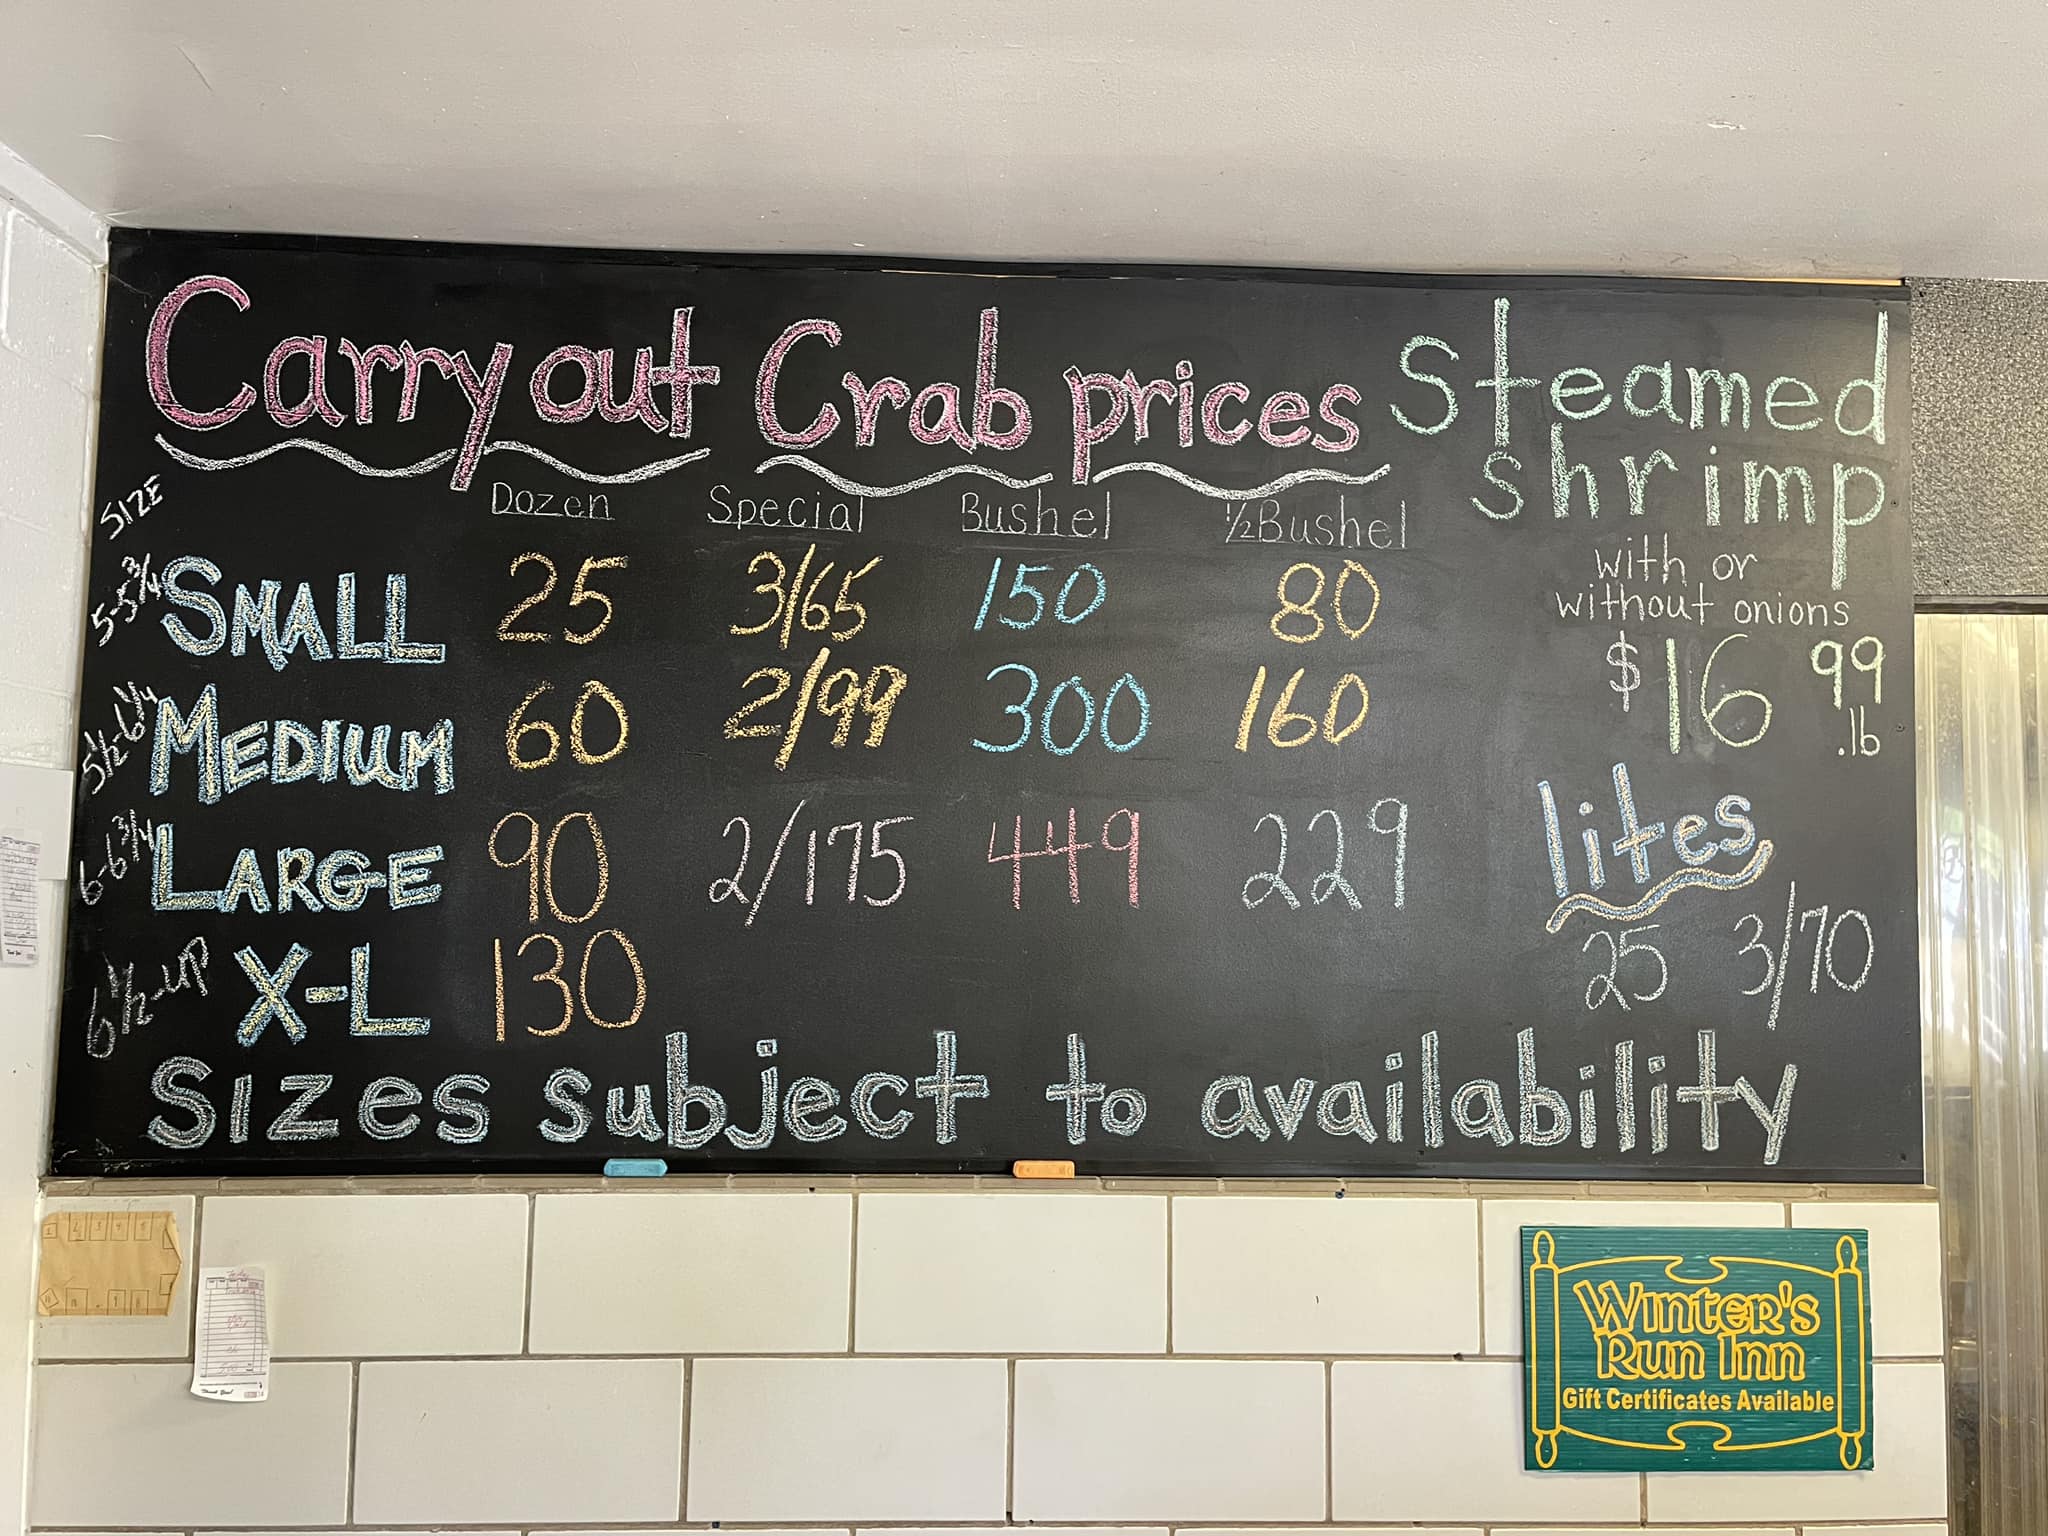 Carry out Crab prices
Steamed
shrimp
with or
without onions
$16 99
.lb
SIZE Dozen Special Bushel ½Bushel
5-5¾ SMALL 25 3/65 150 80
5½-6¼ MEDIUM 60 2/99 300 160
6-6¾ LARGE 90 2/175 449 229
6½-up X-L 130
lites
25 3/70
Sizes subject to availability
Winter's
Run Inn
Gift Certificates Available